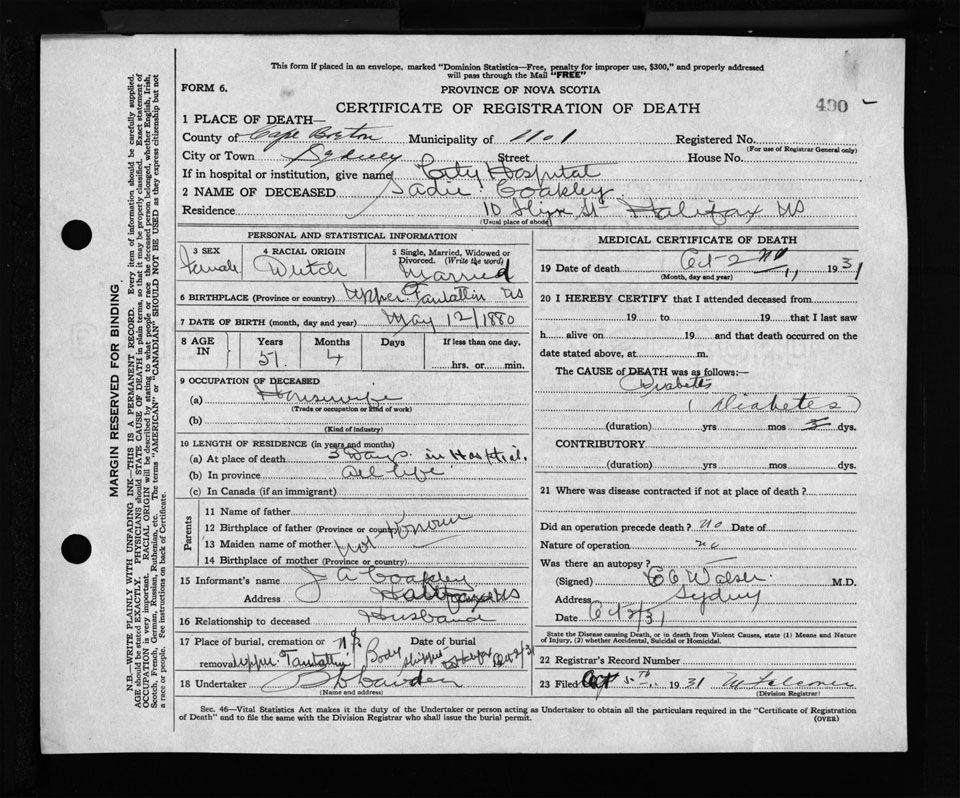 This form if placed in an envelope, marked "Dominion Statistics—Free, penalty for improper use, $300," and properly addressed
will pass through the Mail "FREE"
FORM 6.
PROVINCE OF NOVA SCOTIA
CERTIFICATE OF REGISTRATION OF DEATH
490
1 PLACE OF DEATH—
County of Cape Breton Municipality of No 1 Registered No.
(For use of Registrar General only)
City or Town Sydney Street House No.
If in hospital or institution, give name City Hospital
2 NAME OF DECEASED Sadie Coakley
Residence 10 St Halifax NS
(Usual place of abode)
PERSONAL AND STATISTICAL INFORMATION
3 SEX Female
4 RACIAL ORIGIN Dutch
5 Single, Married, Widowed or Divorced. (Write the word) Married
6 BIRTHPLACE (Province or country) Upper NS
7 DATE OF BIRTH (month, day and year) May 12/1880
8 AGE IN Years Months Days If less than one day,
51 4 hrs. or min.
9 OCCUPATION OF DECEASED
(a) Housewife
(Trade or occupation or kind of work)
(b)
(Kind of industry)
10 LENGTH OF RESIDENCE (in years and months)
(a) At place of death 3 Days in Hospital.
(b) In province all life
(c) In Canada (if an immigrant)
Parents
11 Name of father
12 Birthplace of father (Province or country)
13 Maiden name of mother not
14 Birthplace of mother (Province or country)
15 Informant's name J A Coakley
Address Halifax NS
16 Relationship to deceased Husband
17 Place of burial, cremation or removal Upper NS
Date of burial Body shipped to Halifax Oct 2/31
18 Undertaker
(Name and address)
MEDICAL CERTIFICATE OF DEATH
19 Date of death Oct 2nd 1931
(Month, day and year)
20 I HEREBY CERTIFY that I attended deceased from
19 to 19 that I last saw
h alive on 19 and that death occurred on the
date stated above, at m.
The CAUSE of DEATH was as follows:—
Diabetes
(Diabetes)
(duration) yrs mos 3 dys.
CONTRIBUTORY
(duration) yrs mos dys.
21 Where was disease contracted if not at place of death?
Did an operation precede death? no Date of
Nature of operation no
Was there an autopsy?
(Signed) M.D.
Address Sydney
Date Oct 2/31
State the Disease causing Death, or in death from Violent Causes, state (1) Means and Nature
of Injury, (2) whether Accidental, Suicidal or Homicidal.
22 Registrar's Record Number
23 Filed Oct 5th 1931
(Division Registrar)
Sec. 46—Vital Statistics Act makes it the duty of the Undertaker or person acting as Undertaker to obtain all the particulars required in the "Certificate of Registration
of Death" and to file the same with the Division Registrar who shall issue the burial permit.
(OVER)
MARGIN RESERVED FOR BINDING
N.B.—WRITE PLAINLY WITH UNFADING INK—THIS IS A PERMANENT RECORD. Every item of information should be carefully supplied.
AGE should be stated EXACTLY. PHYSICIANS should STATE CAUSE OF DEATH in plain terms, so that it may be properly classified. Exact statement of
OCCUPATION is very important. RACIAL ORIGIN will be described by stating to what people or race the deceased person belonged, whether English, Irish,
Scotch, French, German, Russian, Ruthenian, etc. The terms "AMERICAN" or "CANADIAN" SHOULD NOT BE USED as they express citizenship but not
a race or people. Fee instructions on back of Certificate.